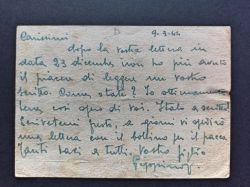 9-3-44
Carissimi
dopo la vostra lettera in
data 23 dicembre non ho più avuto
il piacere di leggere un vostro
scritto. Come state? Io ottimamente
spero di voi. State a
Scrivetemi presto, a giorni vi spedirò
una lettera con il bollino per il pacco
Tanti baci a tutti, vostro figlio